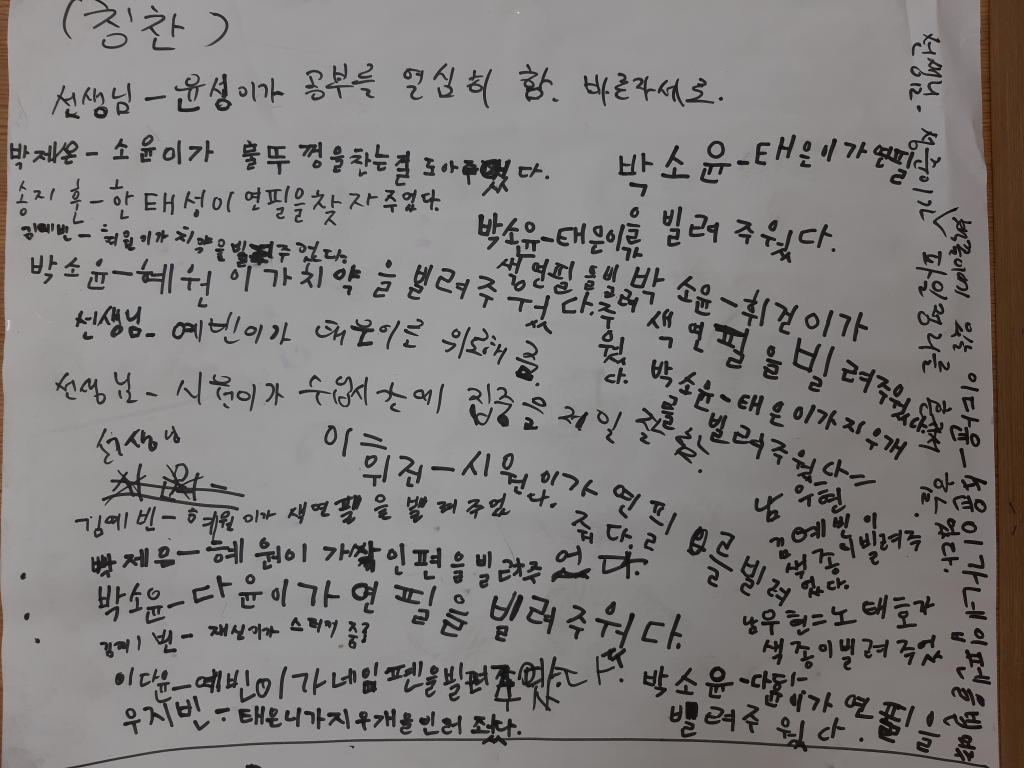 (칭찬)
선생님 - 윤성이가 공부를 열심히 함. 바른자세로.
박제은 - 소윤이가 물뚜껑을찬는걸 도아주었다.
송지훈 - 한태성이 연필을 찾자주었다.
김예빈 - 혜원이가 치약을 빌려주었다.
박소윤 - 혜원이가 치약을 빌려주웠다.
선생님 - 예빈이가 태운이를 위로해줌.
선생님 - 시원이가 수업시간에 집중을 제일 잘 함.
선생님
이 = 위전 - 시원이가 연필
김예빈 - 혜원이가 색연필을 빌려주었다.
제은 - 혜원이가 인펜을 빌려주
박소윤 - 다윤이가 연필을 빌려주웠다.
빈 - 재실기가 스티커 줌
이다윤 - 예빈이가 네임펜을빌려
우지빈 - 태은니가지우개을빈러 조
박소윤 - 태은이가 연필
을 빌려 주웠다.
박소윤 - 태은이가
색연필을빌
려
주
웠
다.
박소윤 - 휘건이가
색연필을 빌려주웠다
박소윤 - 태은이가 지우개
를 빌려주웠다
남우현
김예빈이
색종이빌려주
었다.
남우현 = 노태호가
색종이빌려주었
박소윤 - 다윤이가 연필을
빌려주웠다.
선생님 - 정훈이가 파일정리를 혼자서
이다윤 - 소윤이가 네임펜을빌려